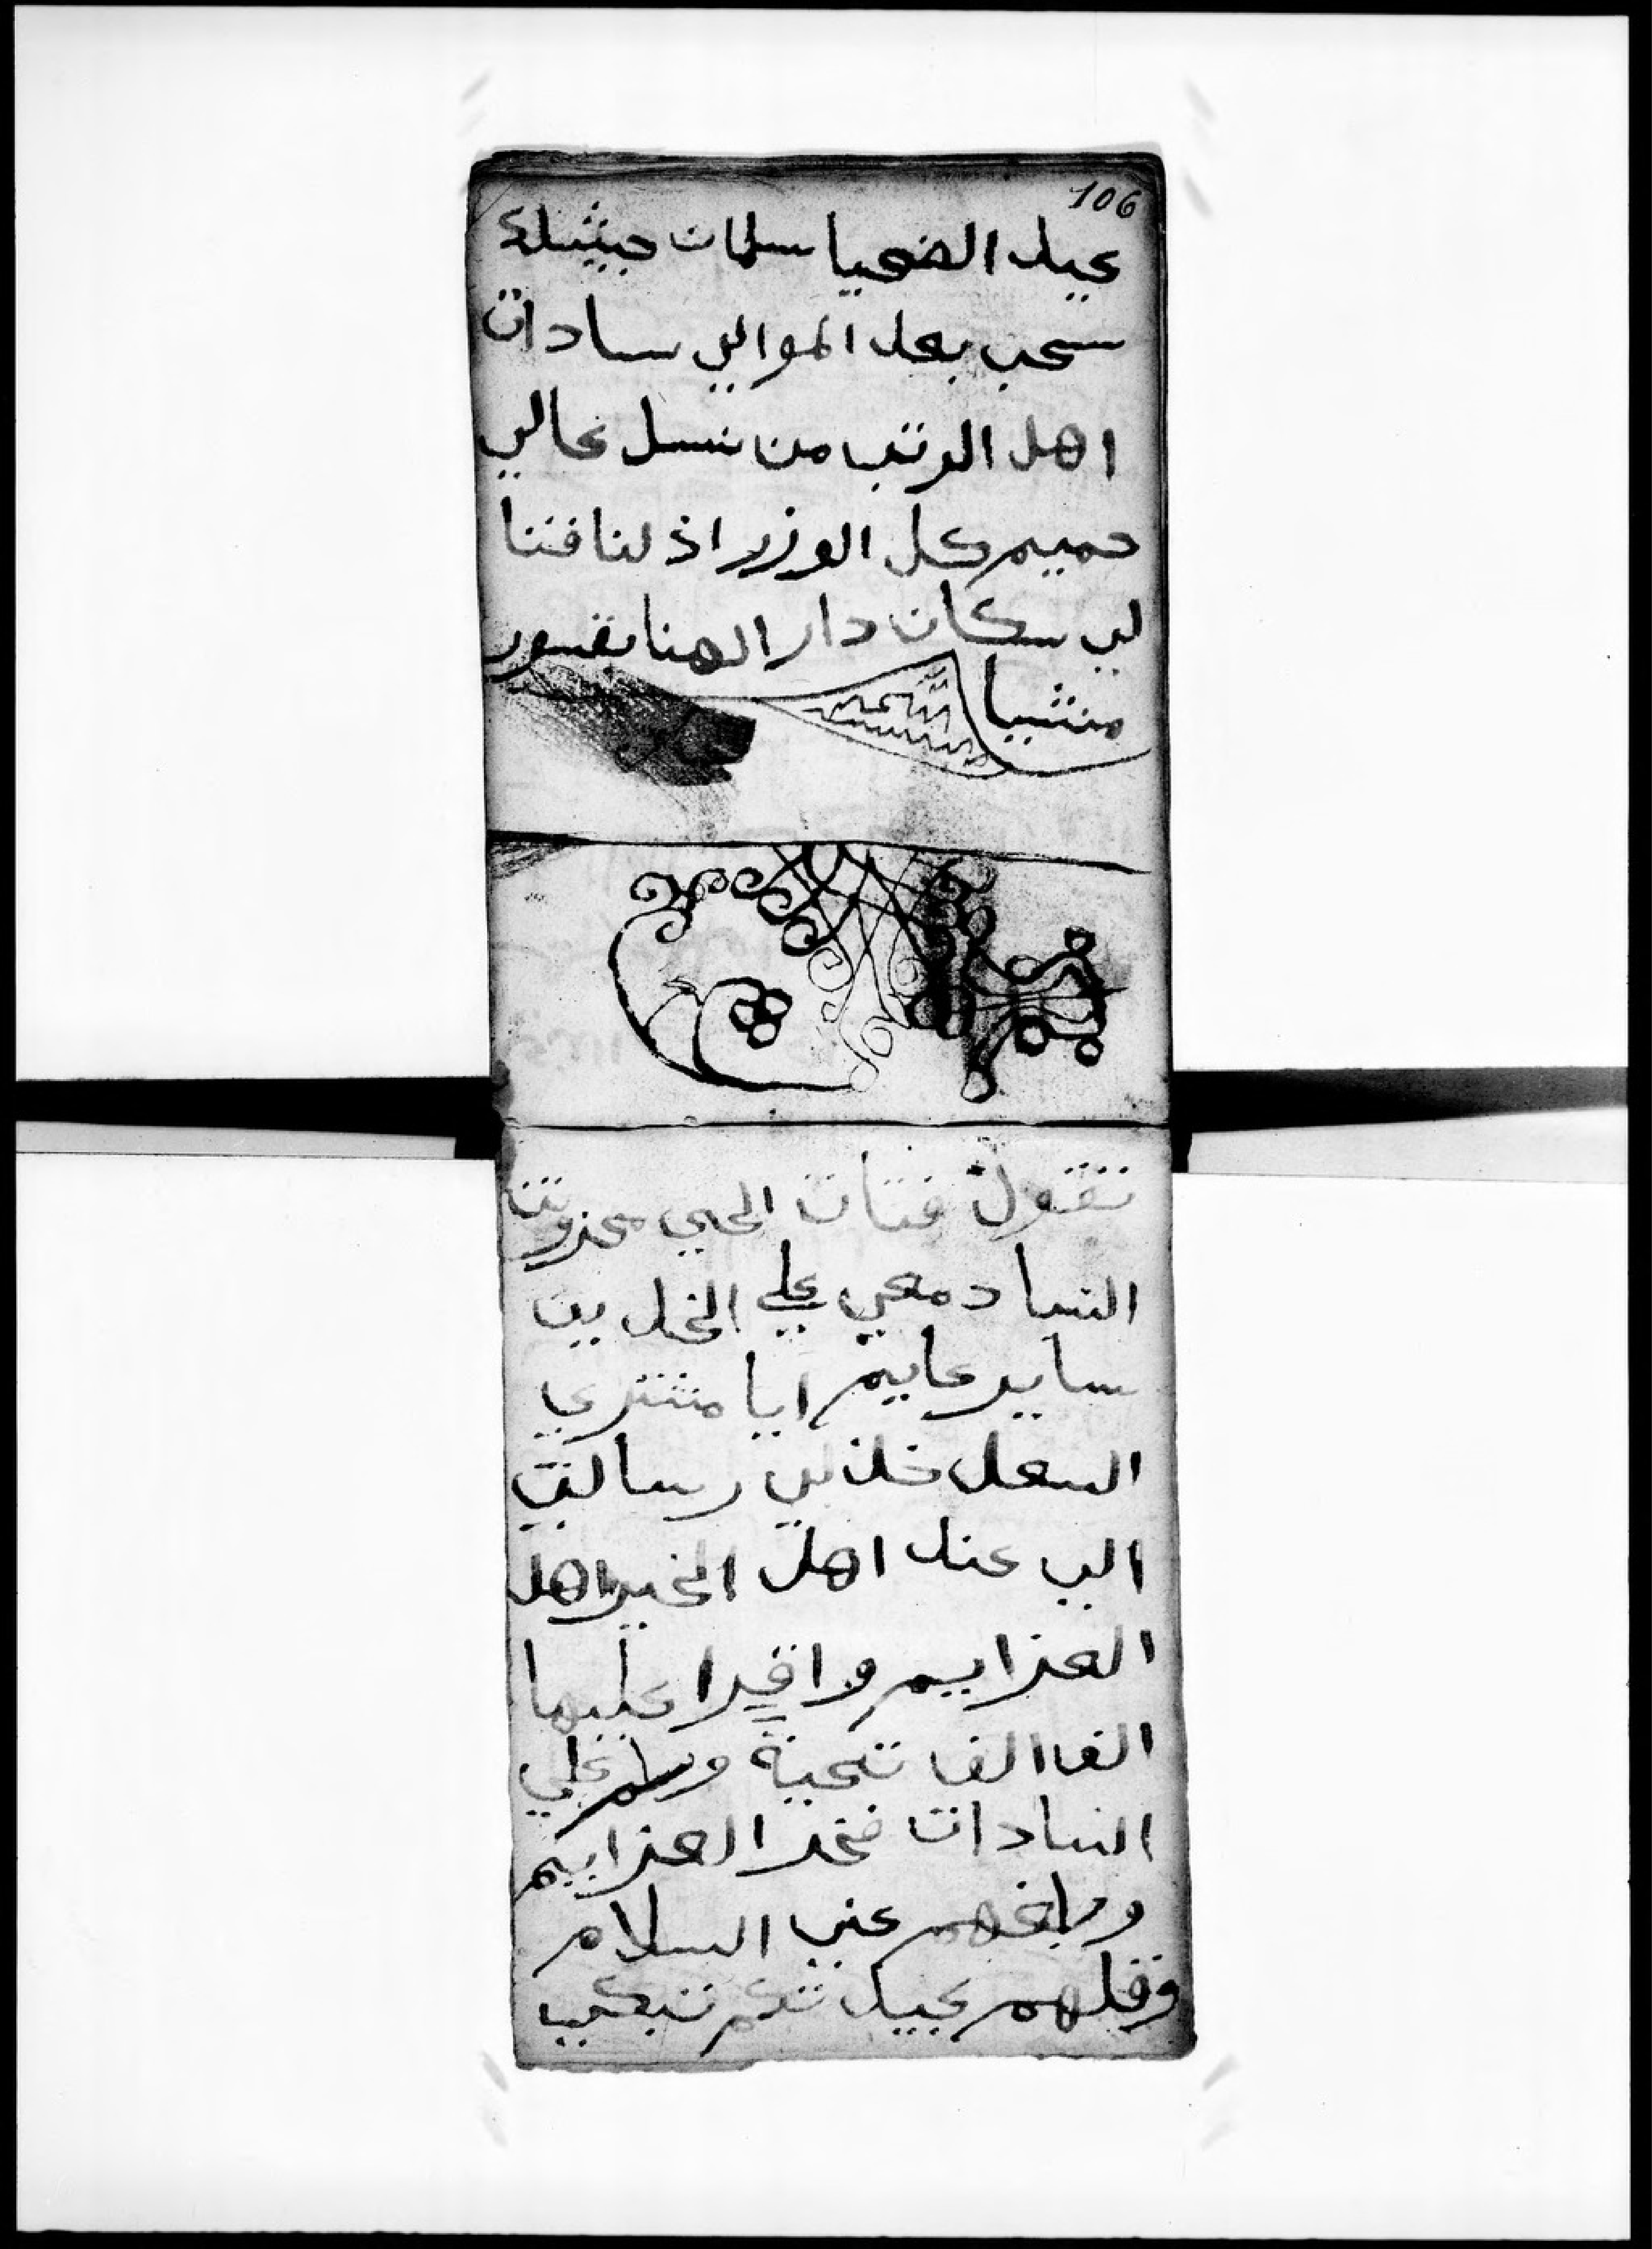 106
عيد الضحيا سلمان حبيثله
سحب بعد الموالي سادات
اهل الرتب من نسل عالي
حميم كل الوزر اذ لنا فتنا
لي سكان دار الهنا بقسور
منشيا
تقول فتات الحي محزونت
النسا دمعي علي الخد ين
ساير عايم ايا مشتري
السعد خذ لي رسالتي
الي عند اهل الخير اهل
العزايم واقرا عليها
الفا الفا تحية وسلم علي
السادات فخر العزايم
وبلغهم عني السلام
وقلهم عبيد تكم تبكي